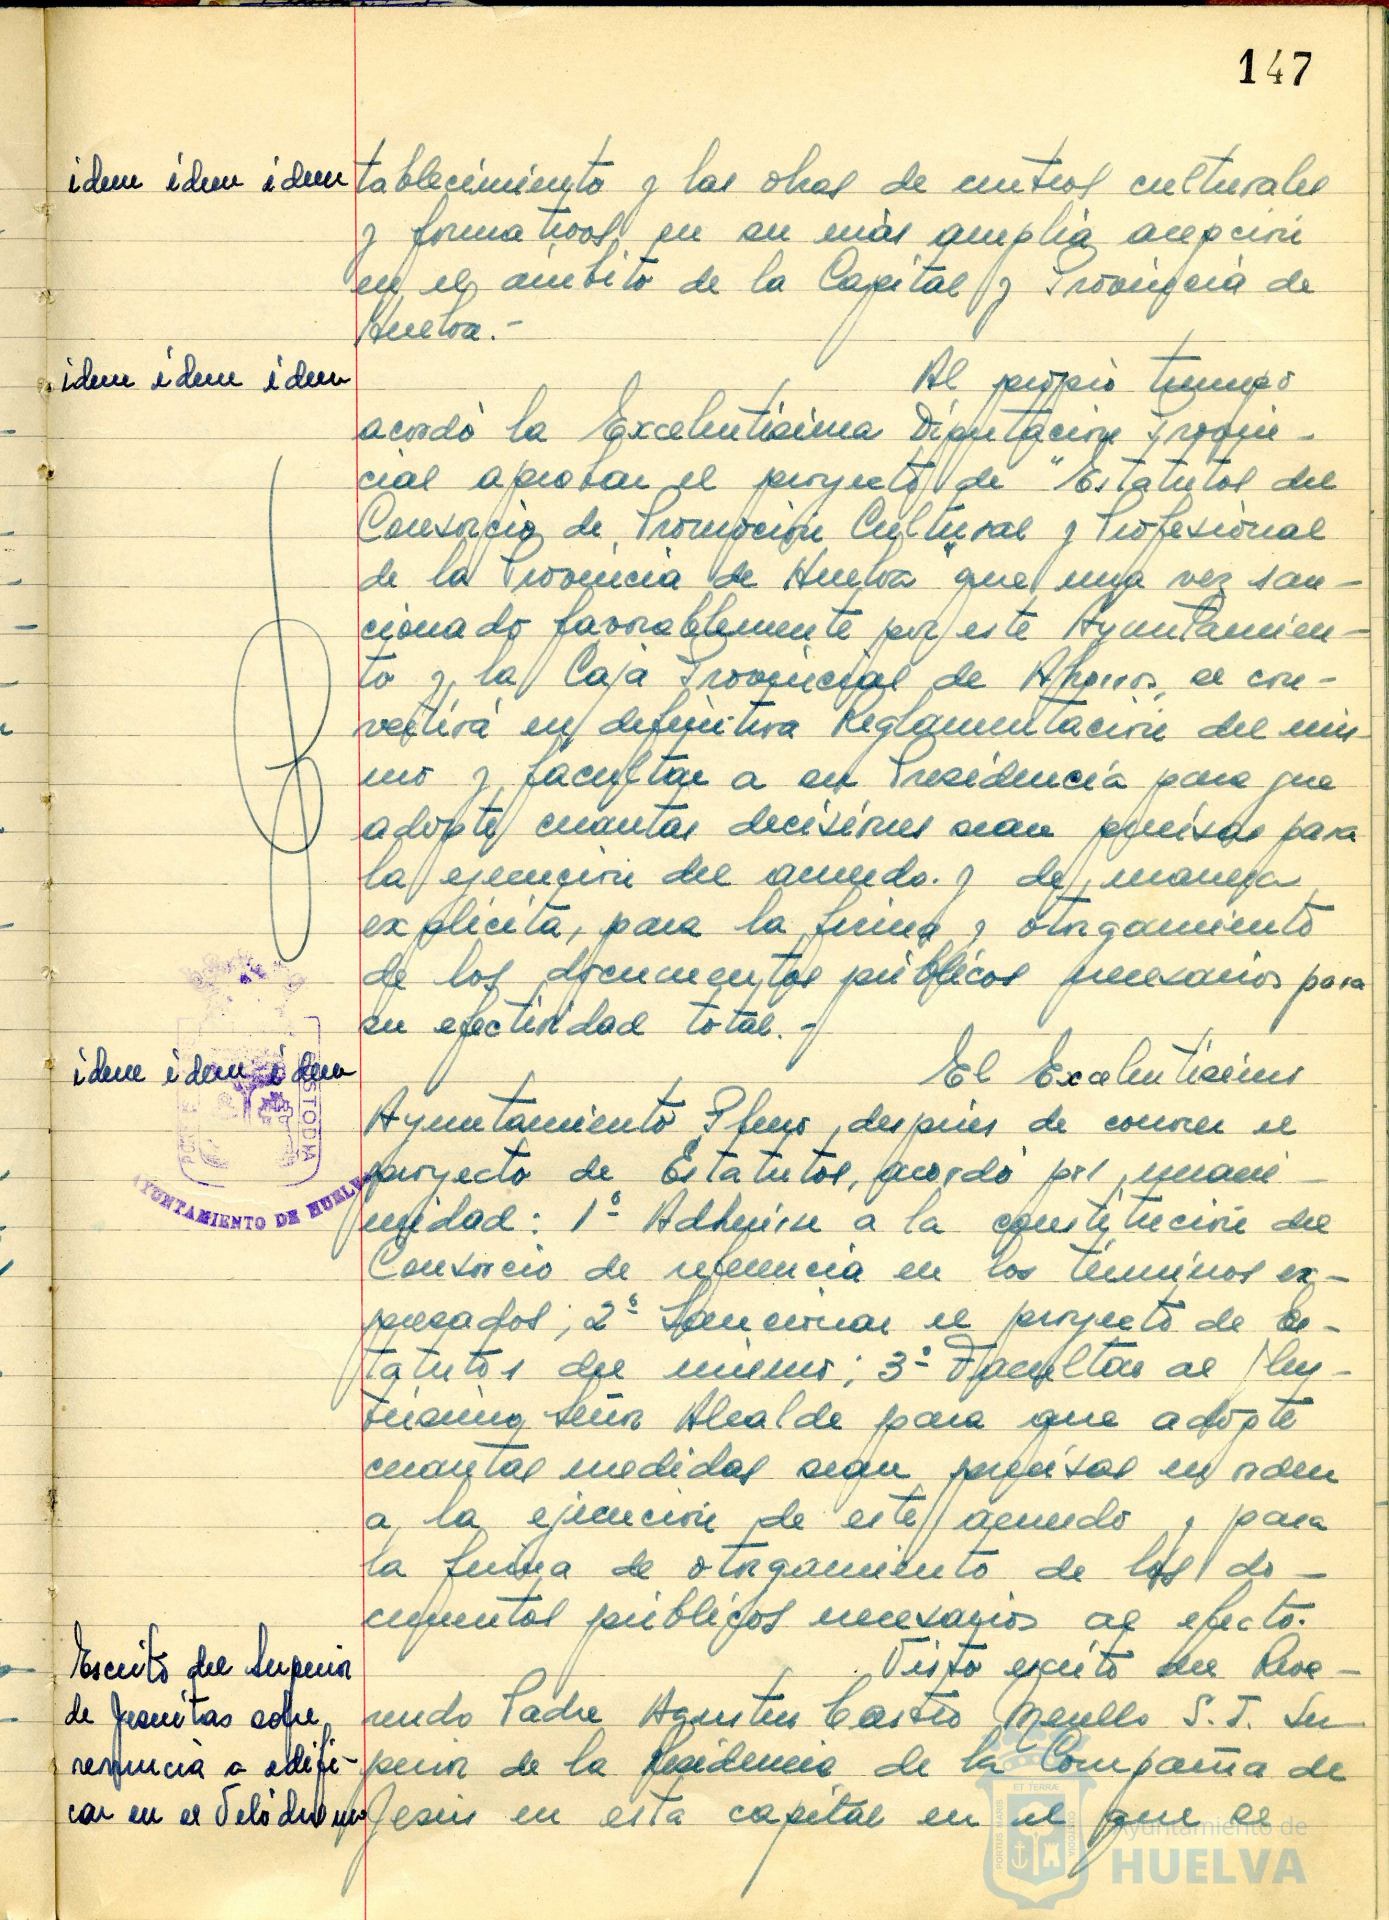 147
idem idem idem tablecimiento y las obras de centros culturales
y formativos en su más amplia acepción
en el ámbito de la Capital y Provincia de
Huelva.-
idem idem idem Al propio tiempo
acordó la Excelentísima Diputación Provin-
cial aprobar el proyecto de "Estatutos del
Consorcio de Promoción Cultural y Profesional
de la Provincia de Huelva" que una vez san-
cionado favorablemente por este Ayuntamien-
to y la Caja Provincial de Ahorros, se con-
vertirá en definitiva Reglamentación del mis-
mo y facultar a su Presidencia para que
adopte cuantas decisiones sean precisas para
la ejecución del acuerdo. y de manera
explícita, para la firma y otorgamiento
de los documentos públicos necesarios para
su efectividad total.-
idem idem idem El Excelentísimo
Ayuntamiento Pleno, después de conocer el
proyecto de Estatutos, acordó por unani-
midad: 1º Adherirse a la constitución del
Consorcio de referencia en los términos ex-
presados; 2º Sancionar el proyecto de Es-
tatutos del mismo; 3º Facultar al Ilus-
trísimo señor Alcalde para que adopte
cuantas medidas sean precisas en orden
a la ejecución de este acuerdo y para
la firma de otorgamiento de los do-
cumentos públicos necesarios al efecto.
Escrito del Superior Visto escrito del Reve-
de Jesuitas sobre rendo Padre Agustín Castro Merello S.J. Su-
renuncia a edifi- perior de la Residencia de la Compañía de
car en el Velódromo Jesús en esta capital en el que se
AYUNTAMIENTO DE HUELVA
Ayuntamiento de
HUELVA